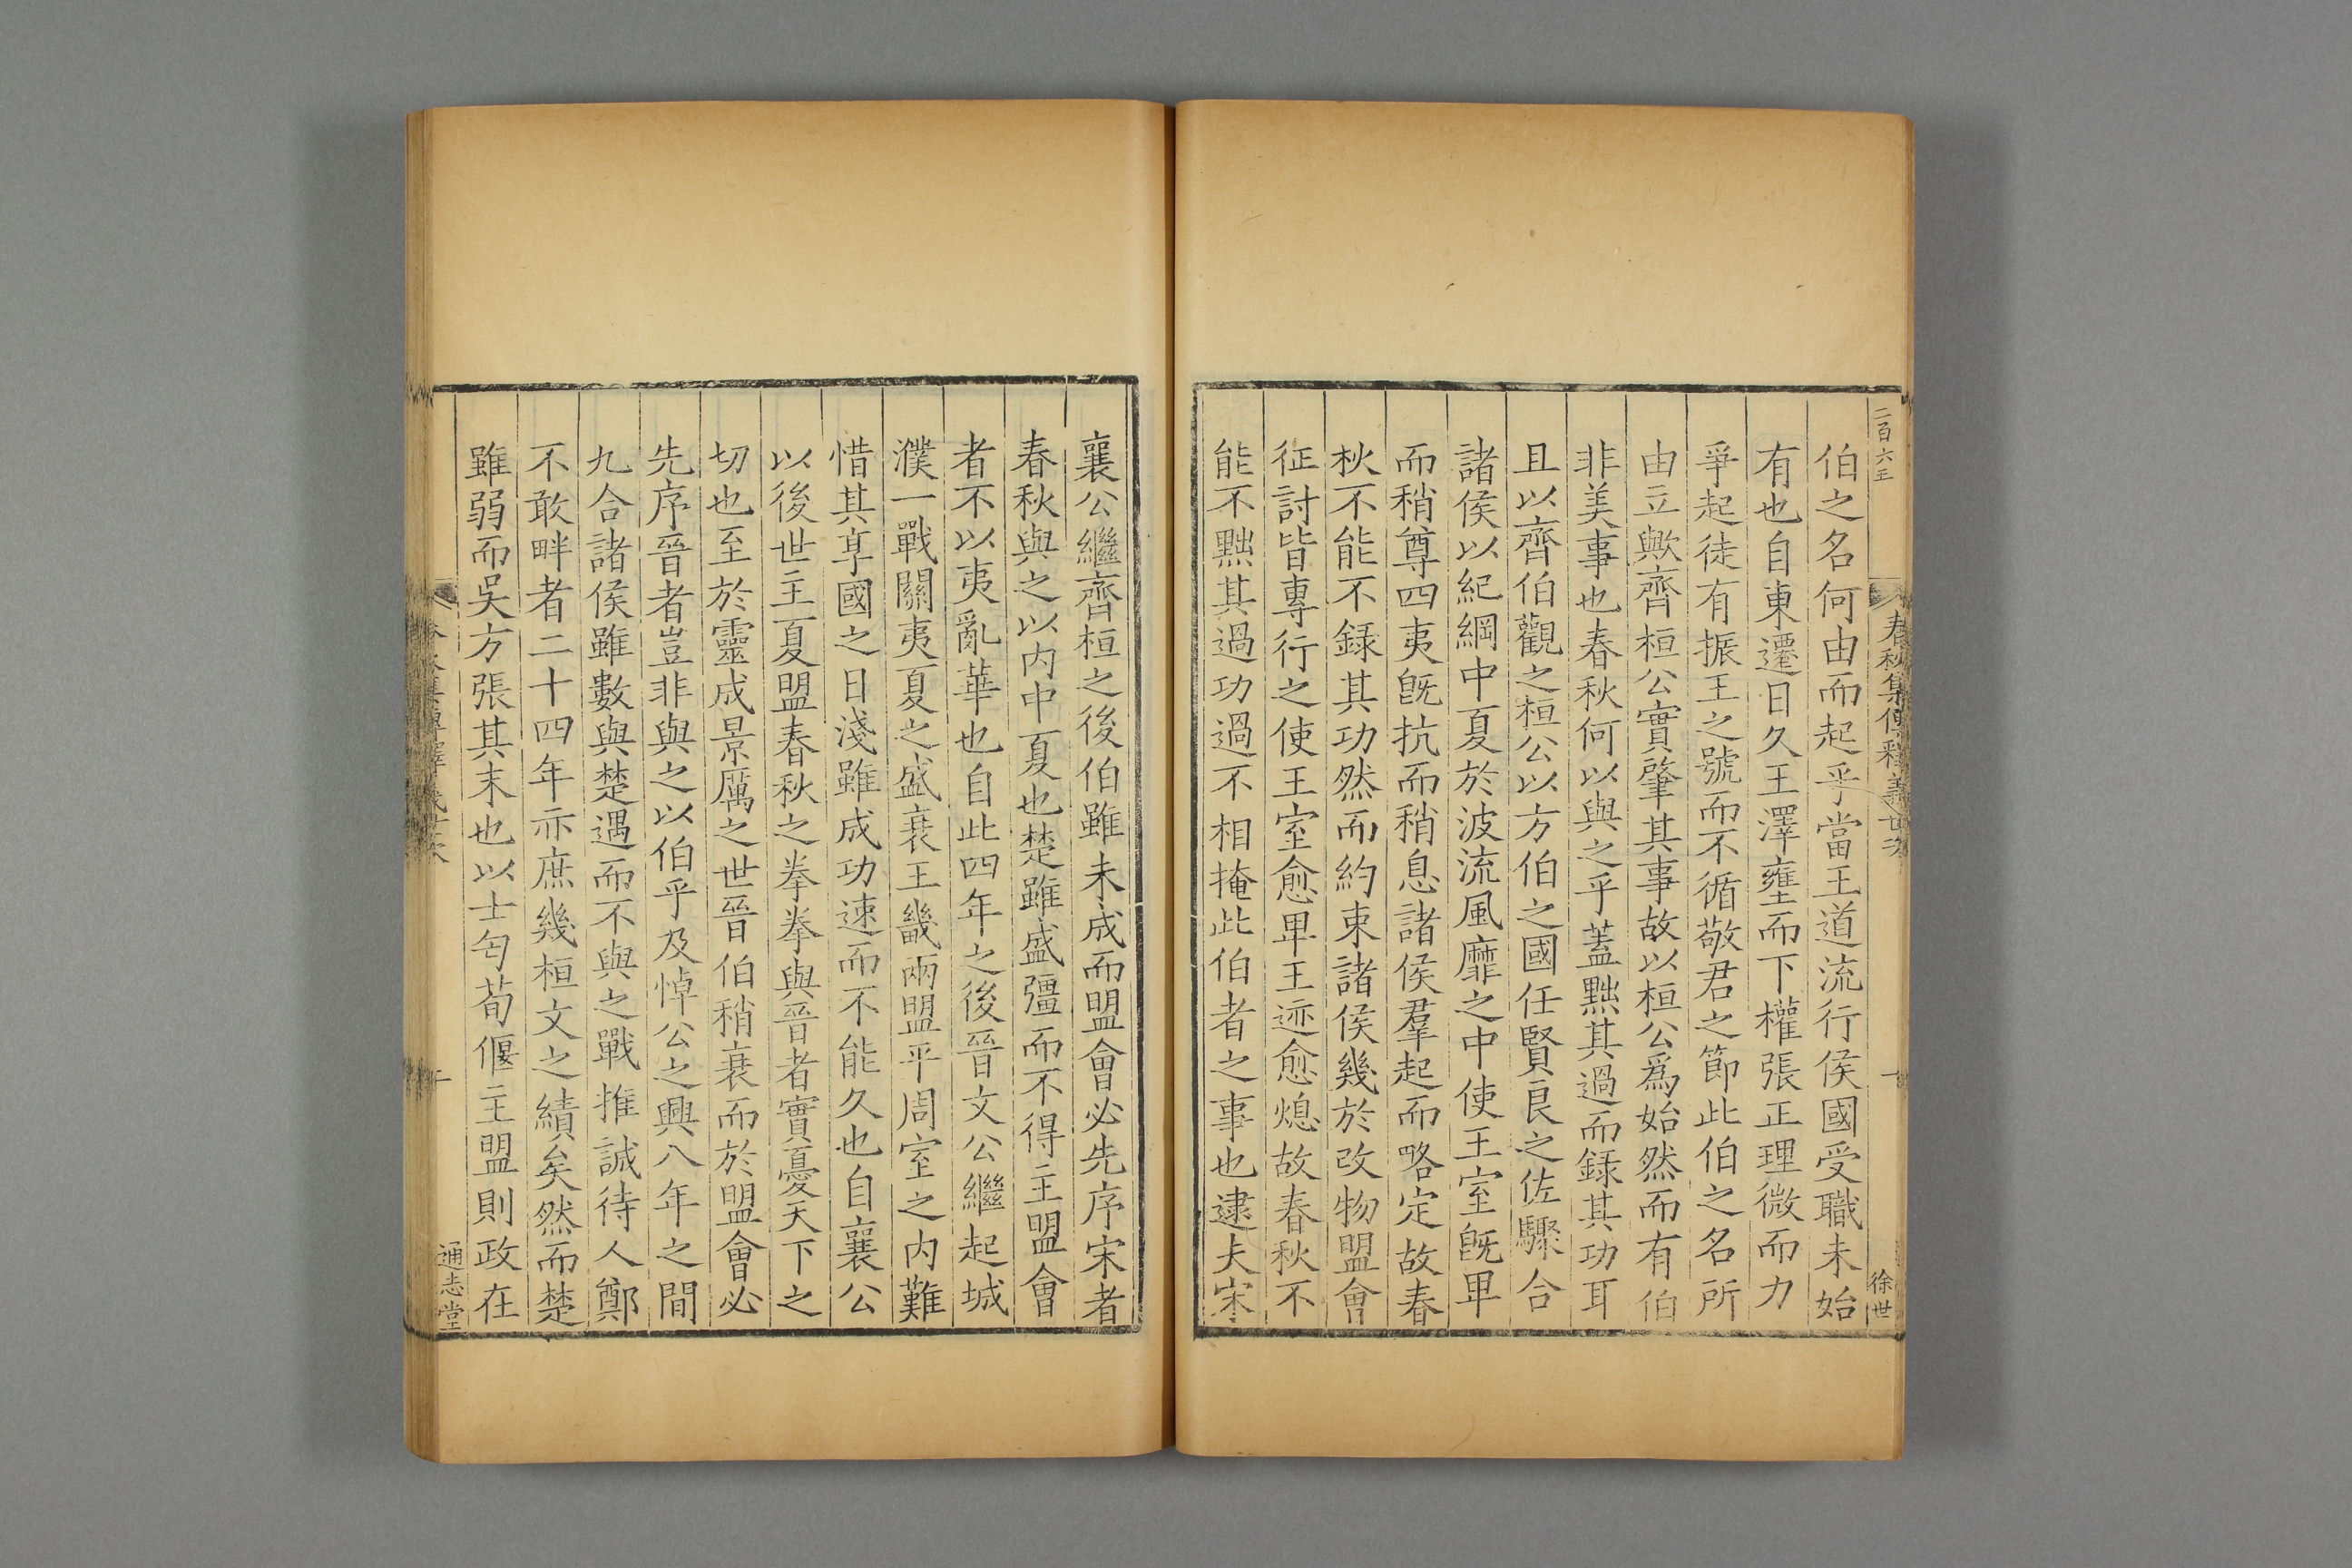 二百六十
春秋集傳釋義
徐世
伯之名何由而起乎當王道流行侯國受職未始
有也自東遷日久王澤壅而下權張正理微而力
爭起徒有振王之號而不循敬君之節此伯之名所
由立歟齊桓公實肇其事故以桓公爲始然而有伯
非美事也春秋何以與之乎蓋黜其過而録其功耳
且以齊伯觀之桓公以方伯之國任賢良之佐驟合
諸侯以紀綱中夏於波流風靡之中使王室旣卑
而稍尊四夷旣抗而稍息諸侯羣起而略定故春
秋不能不録其功然而約束諸侯幾於改物盟會
征討皆專行之使王室愈卑王迹愈熄故春秋不
能不黜其過功過不相掩此伯者之事也逮夫宋
襄公繼齊桓之後伯雖未成而盟會必先序宋者
春秋與之以内中夏也楚雖盛彊而不得主盟會
者不以夷亂華也自此四年之後晉文公繼起城
濮一戰關夷夏之盛衰王畿兩盟平周室之内難
惜其享國之日淺雖成功速而不能久也自襄公
以後世主夏盟春秋之拳拳與晉者實憂天下之
切也至於靈成景厲之世晉伯稍衰而於盟會必
先序晉者豈非與之以伯乎及悼公之興八年之間
九合諸侯雖數與楚遇而不與之戰推誠待人鄭
不敢畔者二十四年亦庶幾桓文之績矣然而楚
雖弱而吳方張其末也以士匄荀偃主盟則政在
通志堂